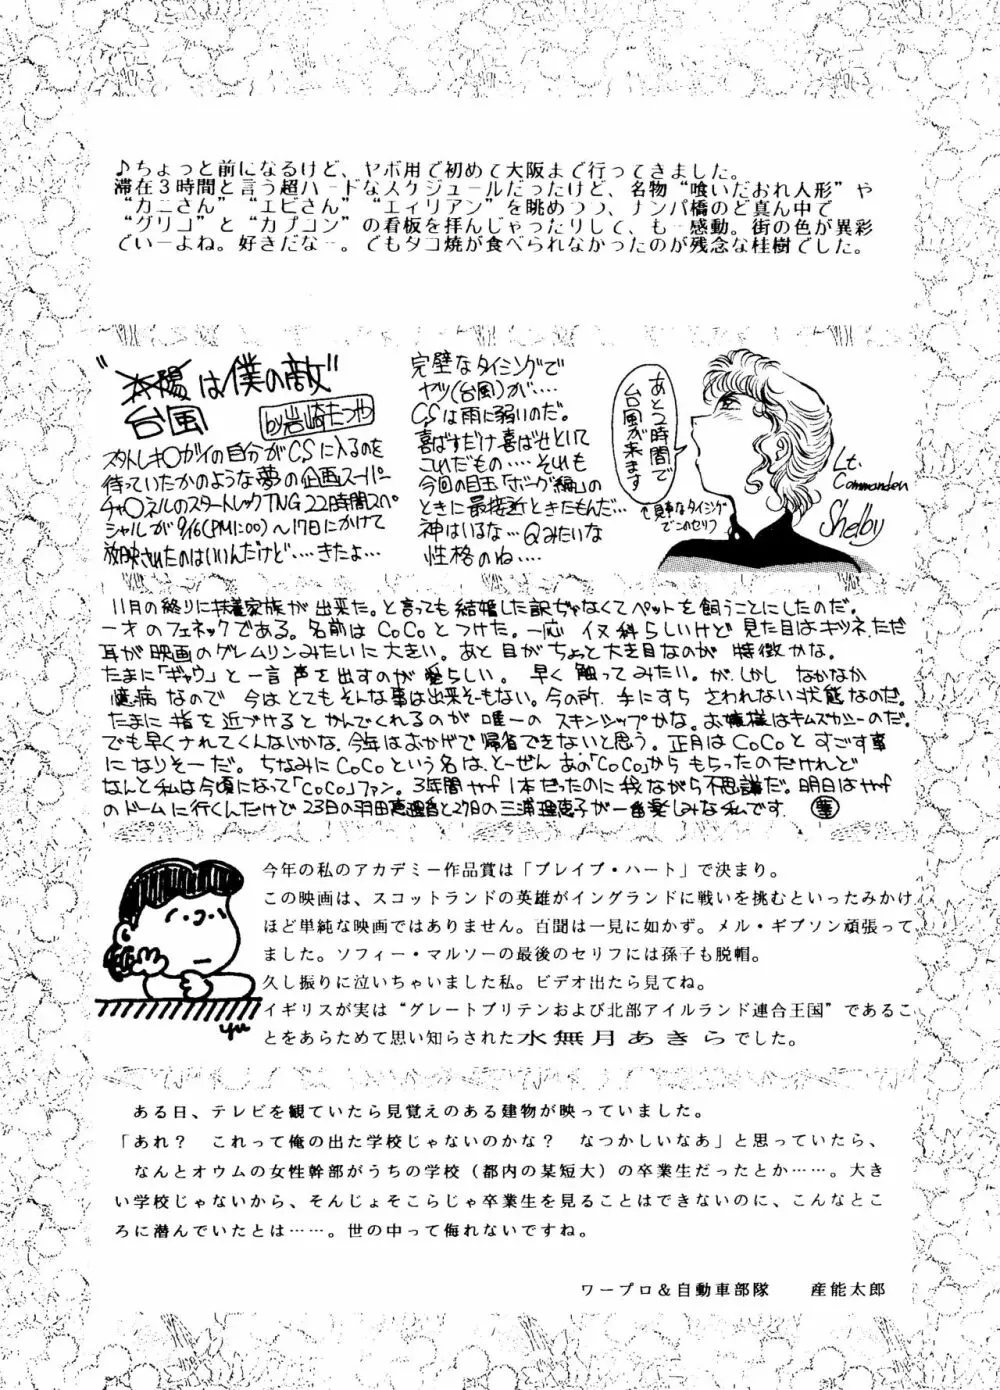 ♪ちょっと前になるけど、ヤボ用で初めて大阪まで行ってきました。
滞在３時間と言う超ハードなスケジュールだったけど、名物“喰いだおれ人形”や
“カニさん”“エビさん”“エィリアン”を眺めつつ、ナンパ橋のど真ん中で
“グリコ”と“カプコン”の看板を拝んじゃったりして、も一感動。街の色が異彩
でいーよね。好きだなー。でもタコ焼が食べられなかったのが残念な桂樹でした。
“太陽は僕の敵”
台風
by岩崎たつや
スタトレキ○ガイの自分がCSに入るのを
待っていたかのような夢の企画スーパー
チャ○ネルのスタートレックTNG 22時間スペ
シャルが9/16(PM1:00)〜17日にかけて
放映されたのはいいんだけど‥‥きたよ…
完璧なタイミングで
ヤツ(台風)が‥‥
CSは雨に弱いのだ。
喜ばすだけ喜ばせといて
これだもの‥‥それも
今回の目玉「ボーグ編」の
ときに最接近ときたもんだ…
神はいるな…Qみたいな
性格のね‥‥
あと2時間で
台風が来ます
見事なタイミング
でこのセリフ
Lt.
Commander
Shelby
11月の終りに扶養家族が出来た。と言っても結婚した訳ぢゃなくてペットを飼うことにしたのだ。
一才のフェネックである。名前はCoCoとつけた。一応イヌ科らしいけど見た目はキツネ、ただ
耳が映画のグレムリンみたいに大きい。あと目がちょと大き目なのが特徴かな。
たまに「ギャウ」と一言声を出すのが愛らしい。早く触ってみたい。が、しかしなかなか
臆病なので今はとてもそんな事は出来そーもない。今の所、手にすらさわれない状態なのだ。
たまに指を近づけるとかんでくれるのが唯一のスキンシップかな。お嬢様はキムズカシーのだ。
でも早くナれてくんないかな。今年はおかげで帰省できないと思う。正月はCoCoとすごす事
になりそーだ。ちなみにCoCoという名は、とーぜんあの「CoCo」からもらったのだけれど
なんと私は今頃になって「CoCo」ファン。3年間ゃf1本だったのに我ながら不思議だ。明日はゃf
のドームに行くんだけど23日の羽田恵理香と27日の三浦理恵子が一番楽しみな私です。
今年の私のアカデミー作品賞は「ブレイブ・ハート」で決まり。
この映画は、スコットランドの英雄がイングランドに戦いを挑むといったみかけ
ほど単純な映画ではありません。百聞は一見に如かず。メル・ギブソン頑張って
ました。ソフィー・マルソーの最後のセリフには孫子も脱帽。
久し振りに泣いちゃいました私。ビデオ出たら見てね。
イギリスが実は“グレートブリテンおよび北部アイルランド連合王国”であるこ
とをあらためて思い知らされた水無月あきらでした。
yu
ある日、テレビを観ていたら見覚えのある建物が映っていました。
「あれ？　これって俺の出た学校じゃないのかな？　なつかしいなあ」と思っていたら、
なんとオウムの女性幹部がうちの学校（都内の某短大）の卒業生だったとか……。大き
い学校じゃないから、そんじょそこらじゃ卒業生を見ることはできないのに、こんなとこ
ろに潜んでいたとは……。世の中って侮れないですね。
ワープロ＆自動車部隊　　産能太郎